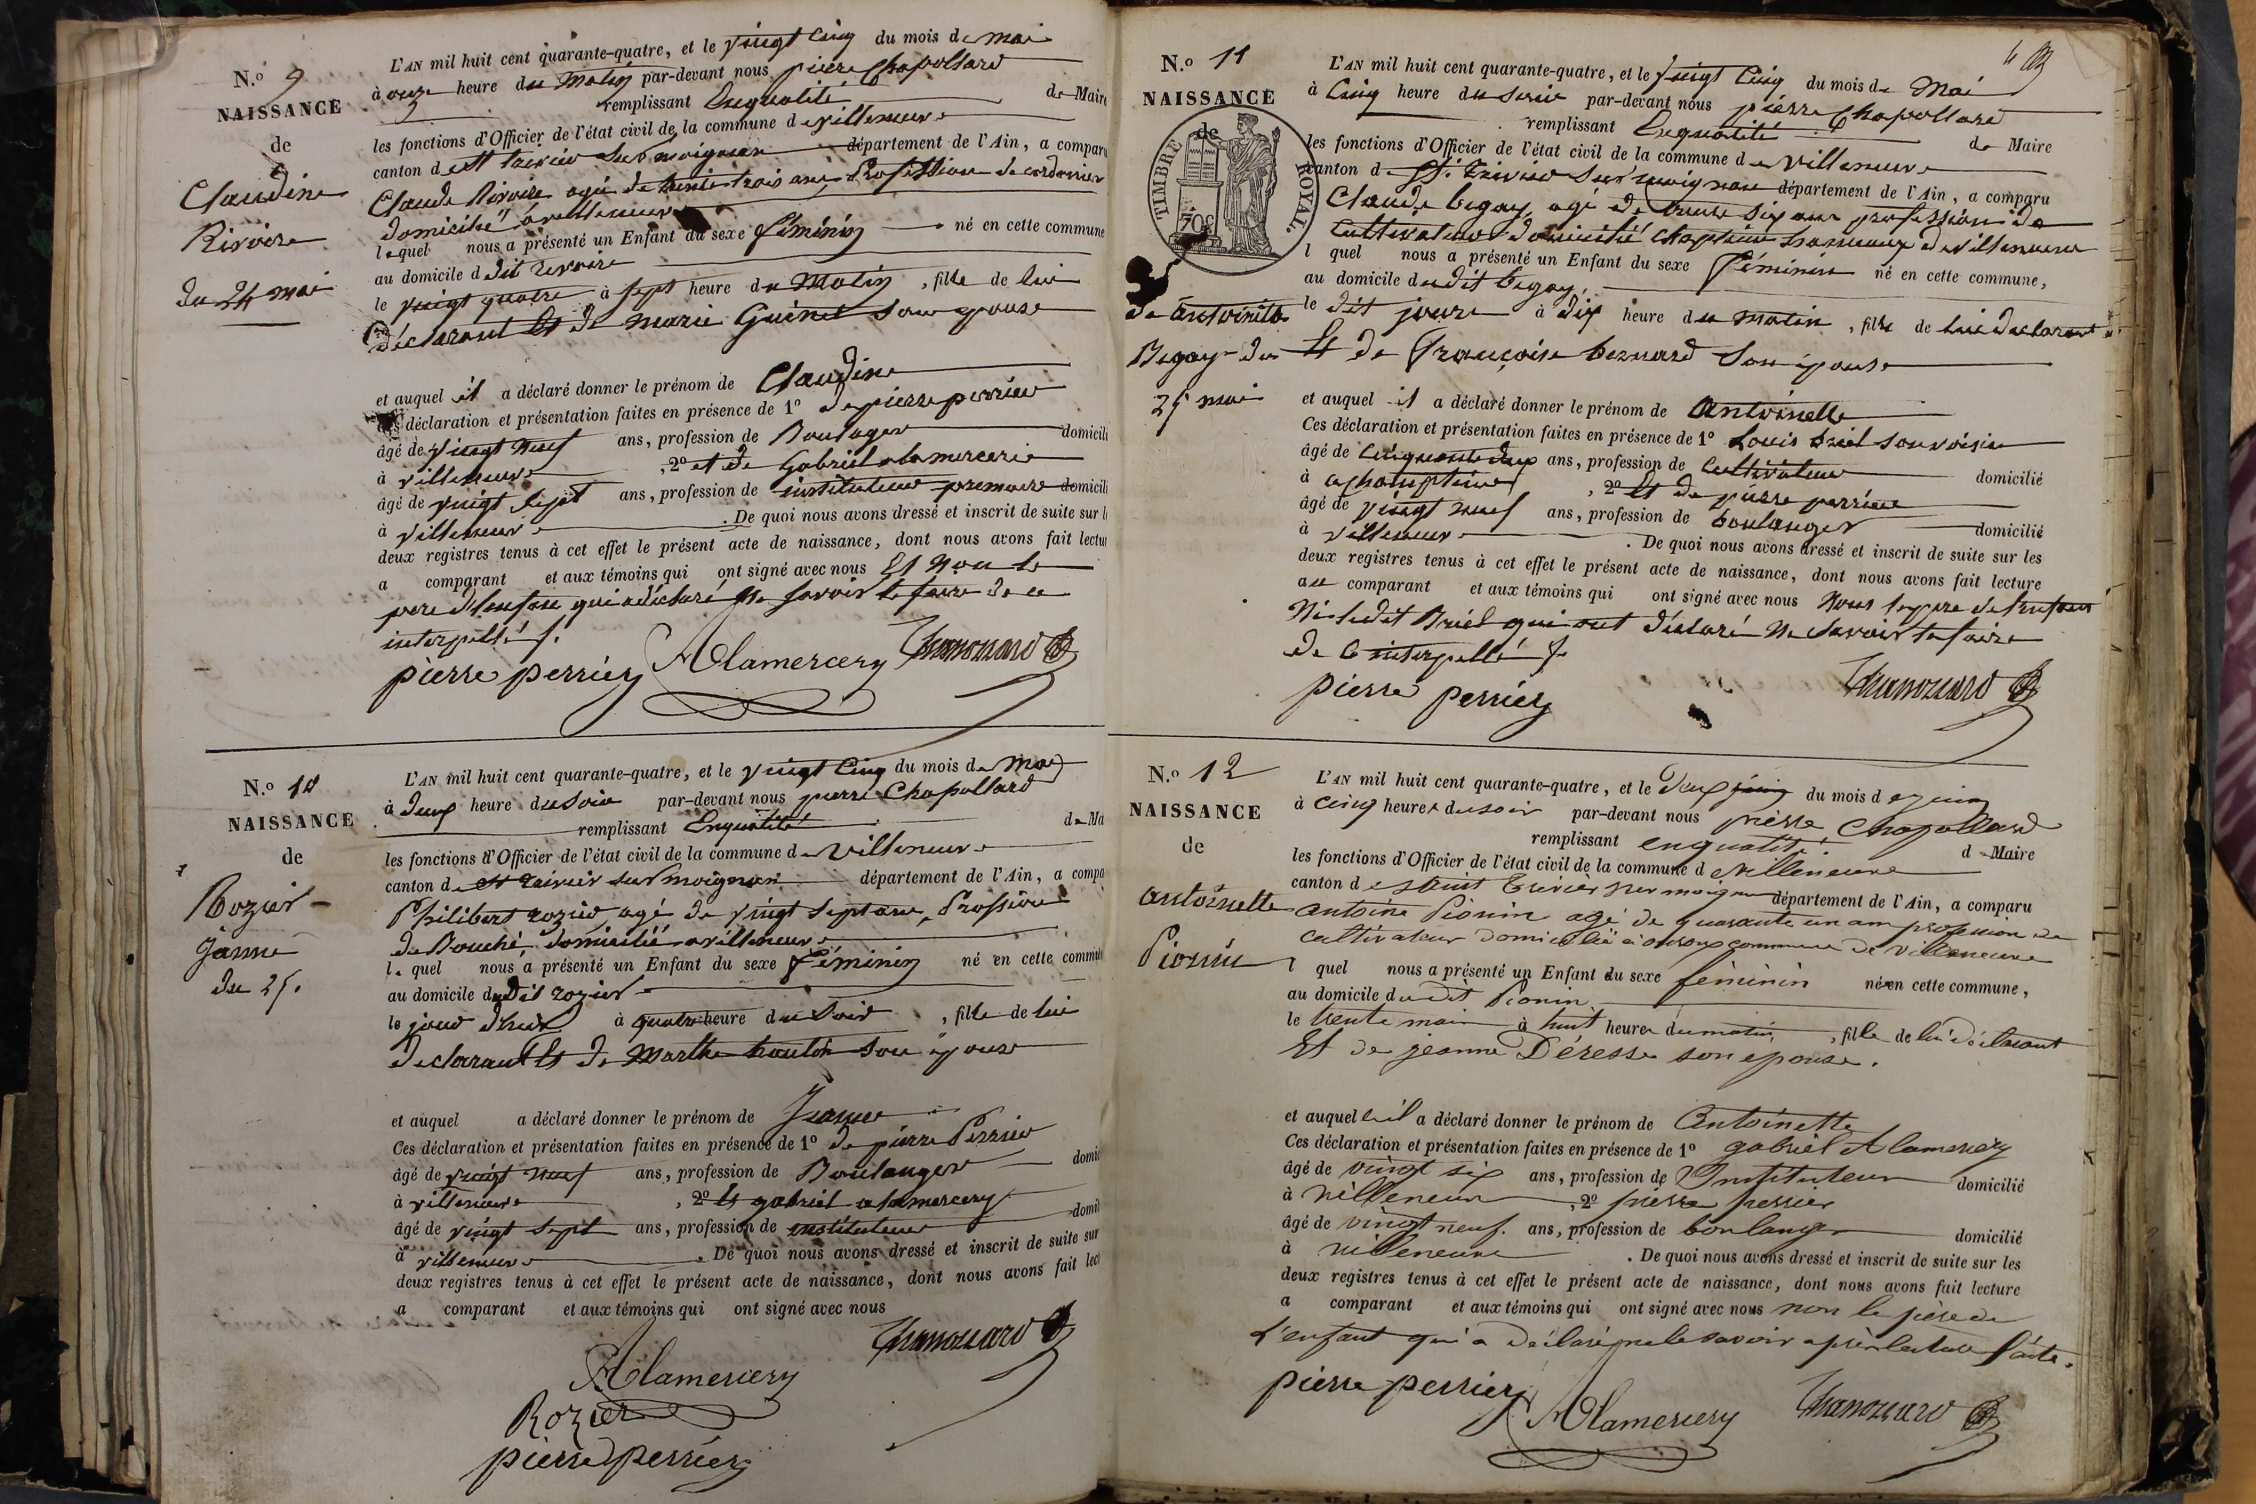 N.o 9
NAISSANCE
de
Claudine
Rivoire
du 24 mai
L'AN mil huit cent quarante-quatre, et le vingt cinq du mois de mai
à onze heure du Matin par-devant nous pierre Chapollard
remplissant Enqualité de Maire
les fonctions d'Officier de l'état civil de la commune de villeneuve
canton de st trivier sur moignan département de l'Ain, a comparu
Claude Rivoire agé de trente trois ans, Profession de cordonnier
domicilié à villeneuve
lequel nous a présenté un Enfant du sexe féminin né en cette commune
au domicile d dit revoire
le vingt quatre à sept heure du Matin, fille de lui
déclarant Et de marie Guérin son épouse
et auquel il a déclaré donner le prénom de Claudine
déclaration et présentation faites en présence de 1° de pierre perrier
âgé de vingt neuf ans, profession de Boulager domicili
à villeneuve, 2° et de Gabriel alamercerie
âgé de vingt sept ans, profession de instituteur premaire domicili
à villeneuve. De quoi nous avons dressé et inscrit de suite sur l
deux registres tenus à cet effet le présent acte de naissance, dont nous avons fait lectur
a comparant et aux témoins qui ont signé avec nous Et Non le
pere d'lenfant qui a déclaré Ne savoir le faire de ce
interpellé f.
pierre perrier Alamercery
N.o 10
NAISSANCE
de
Rozier
Janne
du 25.
L'AN mil huit cent quarante-quatre, et le vingt cinq du mois de Mai
à deux heure du soir par-devant nous pierre Chapollard
remplissant Enqualité de Ma
les fonctions d'Officier de l'état civil de la commune de villeneuve
canton de st trivier sur moignan département de l'Ain, a compa
Philibert rozier agé de vingt sept ans, Profession
de Bouché domicilié a villeneuve
le quel nous a présenté un Enfant du sexe féminin né en cette commu
au domicile dudit rozier
le jour d'hui à quatre heure du soir, fille de lui
declarant Et de Marthe son épouse
et auquel a déclaré donner le prénom de Janne
Ces déclaration et présentation faites en présence de 1° de pierre Perrier
âgé de vingt neuf ans, profession de Boulanger domic
à villeneuve, 2° Et gabriel alamercery
âgé de vingt sept ans, profession de instituteur domi
à villeneuve. De quoi nous avons dressé et inscrit de suite sur
deux registres tenus à cet effet le présent acte de naissance, dont nous avons fait lec
a comparant et aux témoins qui ont signé avec nous
Alamercery
Rozier
pierre perrier
N.o 11
NAISSANCE
de
TIMBRE ROYAL.
70c
de antoinette
Begay du
25 mai
L'AN mil huit cent quarante-quatre, et le vingt cinq du mois de Mai
à Cinq heure du soir par-devant nous pierre Chapollard
remplissant Enqualité de Maire
les fonctions d'Officier de l'état civil de la commune de villeneuve
canton de St. Trivier sur moignan département de l'Ain, a comparu
Claude begay agé de trente six ans profession de
Cultivateur domicilié Chaptein hammeau de villeneuve
l quel nous a présenté un Enfant du sexe féminin né en cette commune,
au domicile dudit begay,
le dit jour à dix heure du matin, fille de lui declarant
Et de françoise bernard son épouse
et auquel il a déclaré donner le prénom de antoinette
Ces déclaration et présentation faites en présence de 1° Louis briel son voisin
âgé de cinquante deux ans, profession de cultivateur domicilié
à achamptein, 2° Et de pierre perrier
âgé de vingt neuf ans, profession de boulanger domicilié
à villeneuve. De quoi nous avons dressé et inscrit de suite sur les
deux registres tenus à cet effet le présent acte de naissance, dont nous avons fait lecture
au comparant et aux témoins qui ont signé avec nous Nous le pere de l'enfant
Ni ledit Briel qui ont déclaré Ne savoir le faire
de ce interpellé f.
pierre perrier
N.o 12
NAISSANCE
de
antoinette
Pionin
L'AN mil huit cent quarante-quatre, et le deux juin du mois de juin
à cinq heures du soir par-devant nous pierre Chapollard
remplissant enqualité d Maire
les fonctions d'Officier de l'état civil de la commune de villeneuve
canton de saint trivier sur moignan département de l'Ain, a comparu
antoine Pionin agé de quarante un an profession de
cultivateur domicilié à commune de villeneuve
l quel nous a présenté un Enfant du sexe féminin né en cette commune,
au domicile dudit Pionin
le trente mai à huit heures du matin, fille de lui déclarant
Et de jeanne Déresse son epouse.
et auquel il a déclaré donner le prénom de antoinette
Ces déclaration et présentation faites en présence de 1° gabriel Alamercery
âgé de vingt six ans, profession de Instituteur domicilié
à villeneuve, 2° pierre perrier
âgé de vingt neuf. ans, profession de boulanger domicilié
à villeneuve. De quoi nous avons dressé et inscrit de suite sur les
deux registres tenus à cet effet le présent acte de naissance, dont nous avons fait lecture
a comparant et aux témoins qui ont signé avec nous non le père de
L'enfant qui a déclaré ne le savoir après lecture faite.
pierre perrier Alamercery